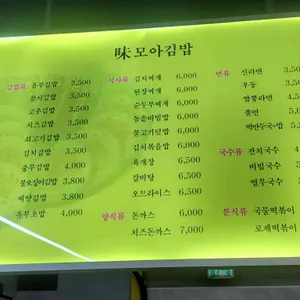 味 모아김밥
김밥류 원무김밥 2,500
참치김밥 3,500
고추김밥 3,500
치즈김밥 3,500
쇠고기김밥 3,500
김치김밥 3,500
충무김밥 4,000
불오징어김밥 3,800
씨앗김밥 3,800
유부초밥 4,000
식사류 김치찌개 6,000
된장찌개 6,000
순두부찌개 6,000
돌솥비빔밥 6,000
불고기덮밥 6,000
김치볶음밥 6,000
육개장 6,500
갈비탕 6,500
오므라이스 6,500
양식류 돈까스 6,000
치즈돈까스 7,000
면류 신라면
우동
짬뽕라면
쫄면
떡만두국+밥
국수류 잔치국수
비빔국수
열무국수
분식류 국물떡볶이
로제떡볶이